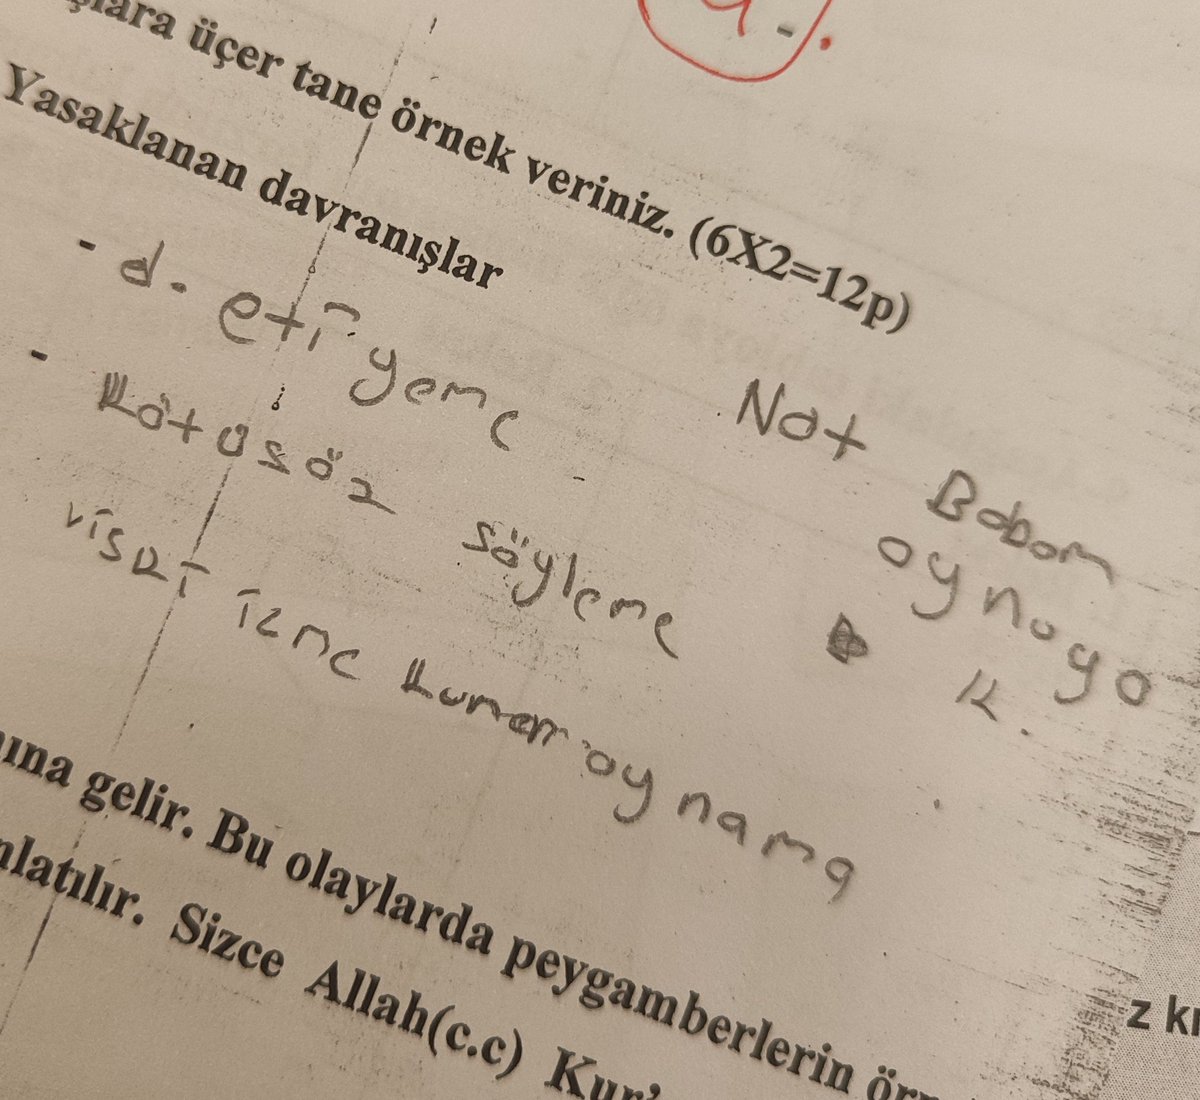 4.
şlara üçer tane örnek veriniz. (6X2=12p)
Yasaklanan davranışlar
- d. eti yeme
- kötü söz söyleme
viski izme kumar oynama
Not Babam
oynuyo
K.
ına gelir. Bu olaylarda peygamberlerin ör
nlatılır. Sizce Allah(c.c) Kur'
z kı